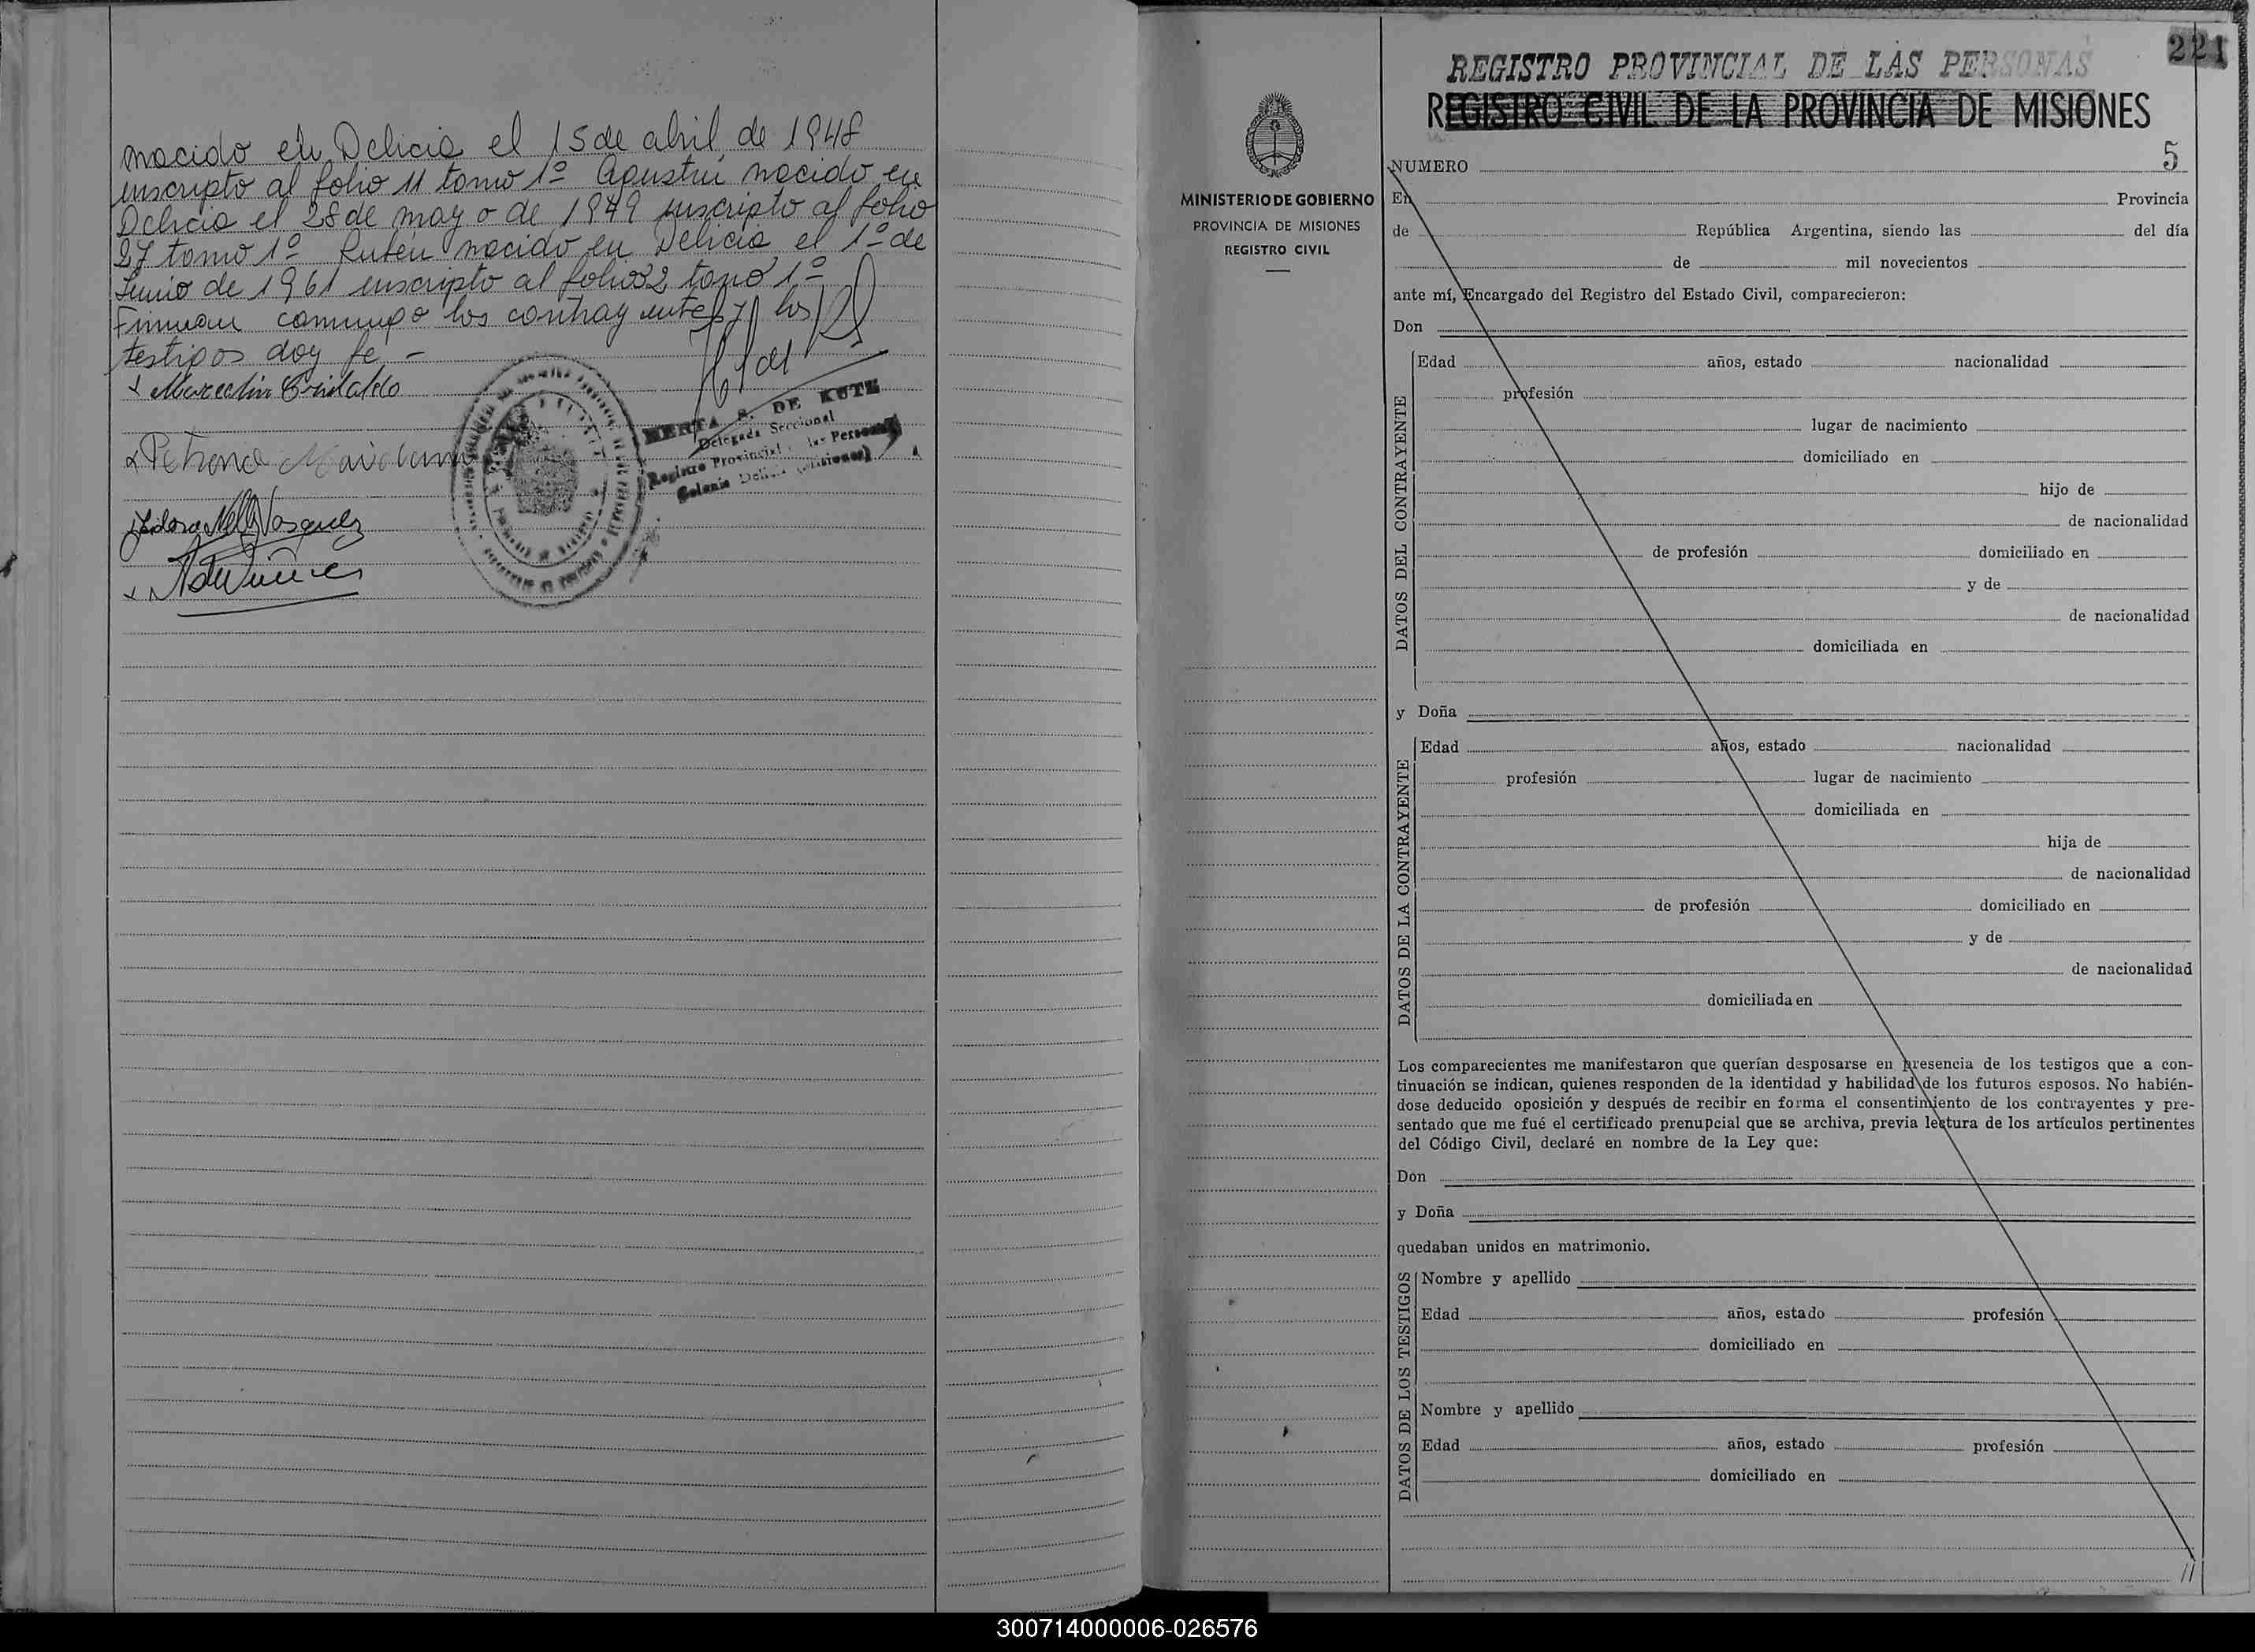 nacido en Delicia el 15 de abril de 1948
inscripto al folio 11 tomo 1º Agustin, nacido en
Delicia el 28 de mayo de 1949 inscripto al folio
27 tomo 1º Ruben nacido en Delicia el 1º de
Junio de 1961 inscripto al folio 32 tomo 1º
Firman conmigo los contrayentes y los
testigos doy fe -
DE KUTZ
Delegada Seccional
Registro Provincial las Personas
Colonia Delicia (Misiones)
221
REGISTRO PROVINCIAL DE LAS PERSONAS
REGISTRO CIVIL DE LA PROVINCIA DE MISIONES
MINISTERIO DE GOBIERNO
PROVINCIA DE MISIONES
REGISTRO CIVIL
NUMERO 5
En Provincia
de República Argentina, siendo las del día
de mil novecientos
ante mí, Encargado del Registro del Estado Civil, comparecieron:
Don
DATOS DEL CONTRAYENTE
Edad años, estado nacionalidad
profesión
lugar de nacimiento
domiciliado en
hijo de
de nacionalidad
de profesión domiciliado en
y de
de nacionalidad
domiciliada en
y Doña
DATOS DE LA CONTRAYENTE
Edad años, estado nacionalidad
profesión lugar de nacimiento
domiciliada en
hija de
de nacionalidad
de profesión domiciliado en
y de
de nacionalidad
domiciliada en
Los comparecientes me manifestaron que querían desposarse en presencia de los testigos que a con-
tinuación se indican, quienes responden de la identidad y habilidad de los futuros esposos. No habién-
dose deducido oposición y después de recibir en forma el consentimiento de los contrayentes y pre-
sentado que me fué el certificado prenupcial que se archiva, previa lectura de los artículos pertinentes
del Código Civil, declaré en nombre de la Ley que:
Don
y Doña
quedaban unidos en matrimonio.
DATOS DE LOS TESTIGOS
Nombre y apellido
Edad años, estado profesión
domiciliado en
Nombre y apellido
Edad años, estado profesión
domiciliado en
300714000006-026576